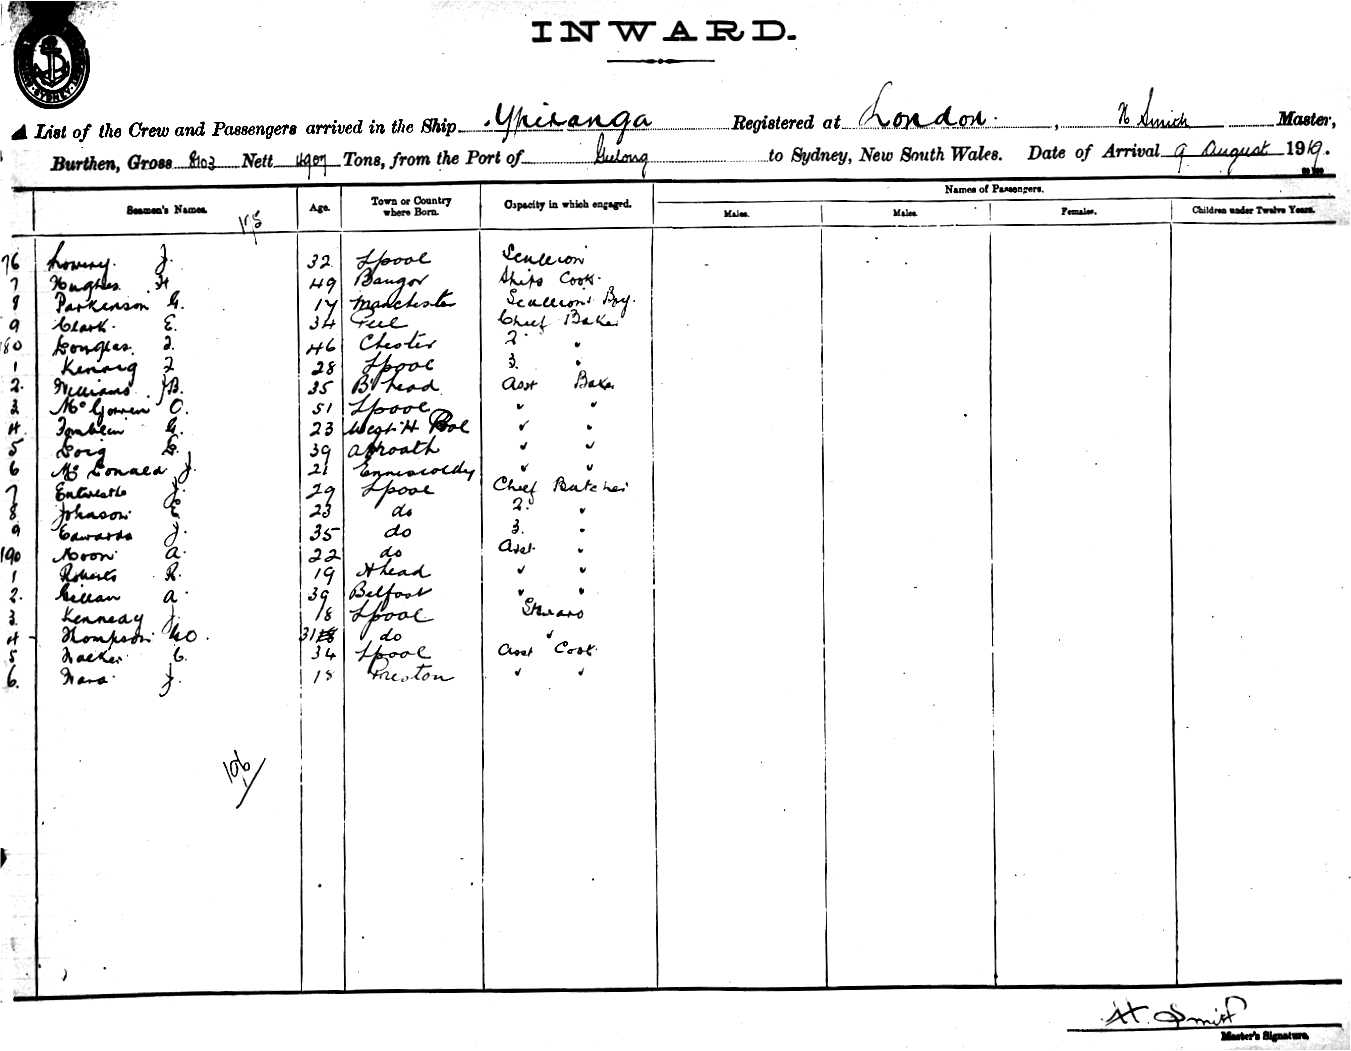 INWARD.
SYDNEY
List of the Crew and Passengers arrived in the Ship Ypiranga Registered at London. , H Smith Master,
Burthen, Gross 8103 Nett 4907 Tons, from the Port of Geelong to Sydney, New South Wales. Date of Arrival 9 August 1919.
Seamen's Names. Age. Town or Country where Born. Capacity in which engaged. Names of Passengers.
Males. Males. Females. Children under Twelve Years.
76 Lowery. J. 32 Lpool Scullion
7 Hughes H 49 Bangor Ships Cook.
8 Parkinson G. 17 Manchester Scullions Boy.
9 Clark. E. 34 Peel Chief Baker
180 Douglas. J. 46 Chester 2 "
1 28 Lpool 3. "
2. Williams J.B. 35 B'head Asst Baker
3 O. 51 Lpool " "
4. G. 23 West H Pool " "
5 39 " "
6 Mc Donald J. 21 Enniscorthy " "
7 Entwistle J. 29 Lpool Chief Butcher
8 Johnson E 23 do 2. "
9 Edwards J. 35 do 3. "
190 Moon A. 22 do Asst. "
1 Roberts R. 19 " "
2. Gillan A. 39 Belfast " "
3. Kennedy J. 18 Lpool Steward
4 Thompson 31 do "
5 C. 34 Lpool Asst Cook.
6. J. 18 Preston " "
106
H. Smith
Master's Signature.